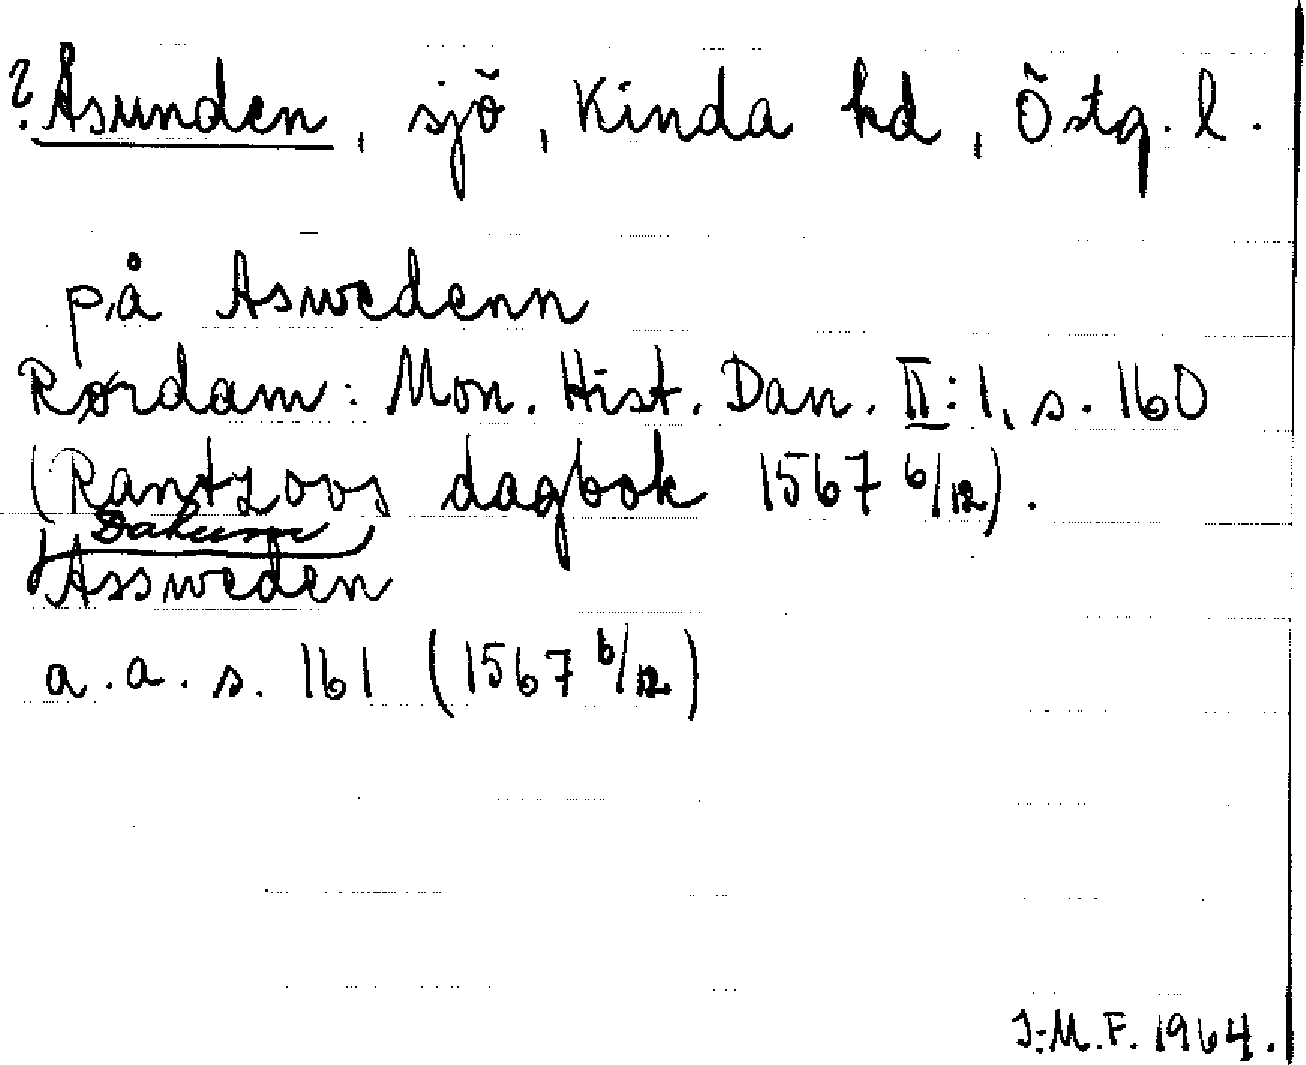 ? Åsunden, sjö, Kinda hd, Östg. l.
på Aswedenn
Rørdam: Mon. Hist. Dan. II:1, s. 160
(Rantzovs dagbok 1567 6/12).
Datum
Assweden
a.a. s. 161 (1567 6/12)
I:M.F. 1964.